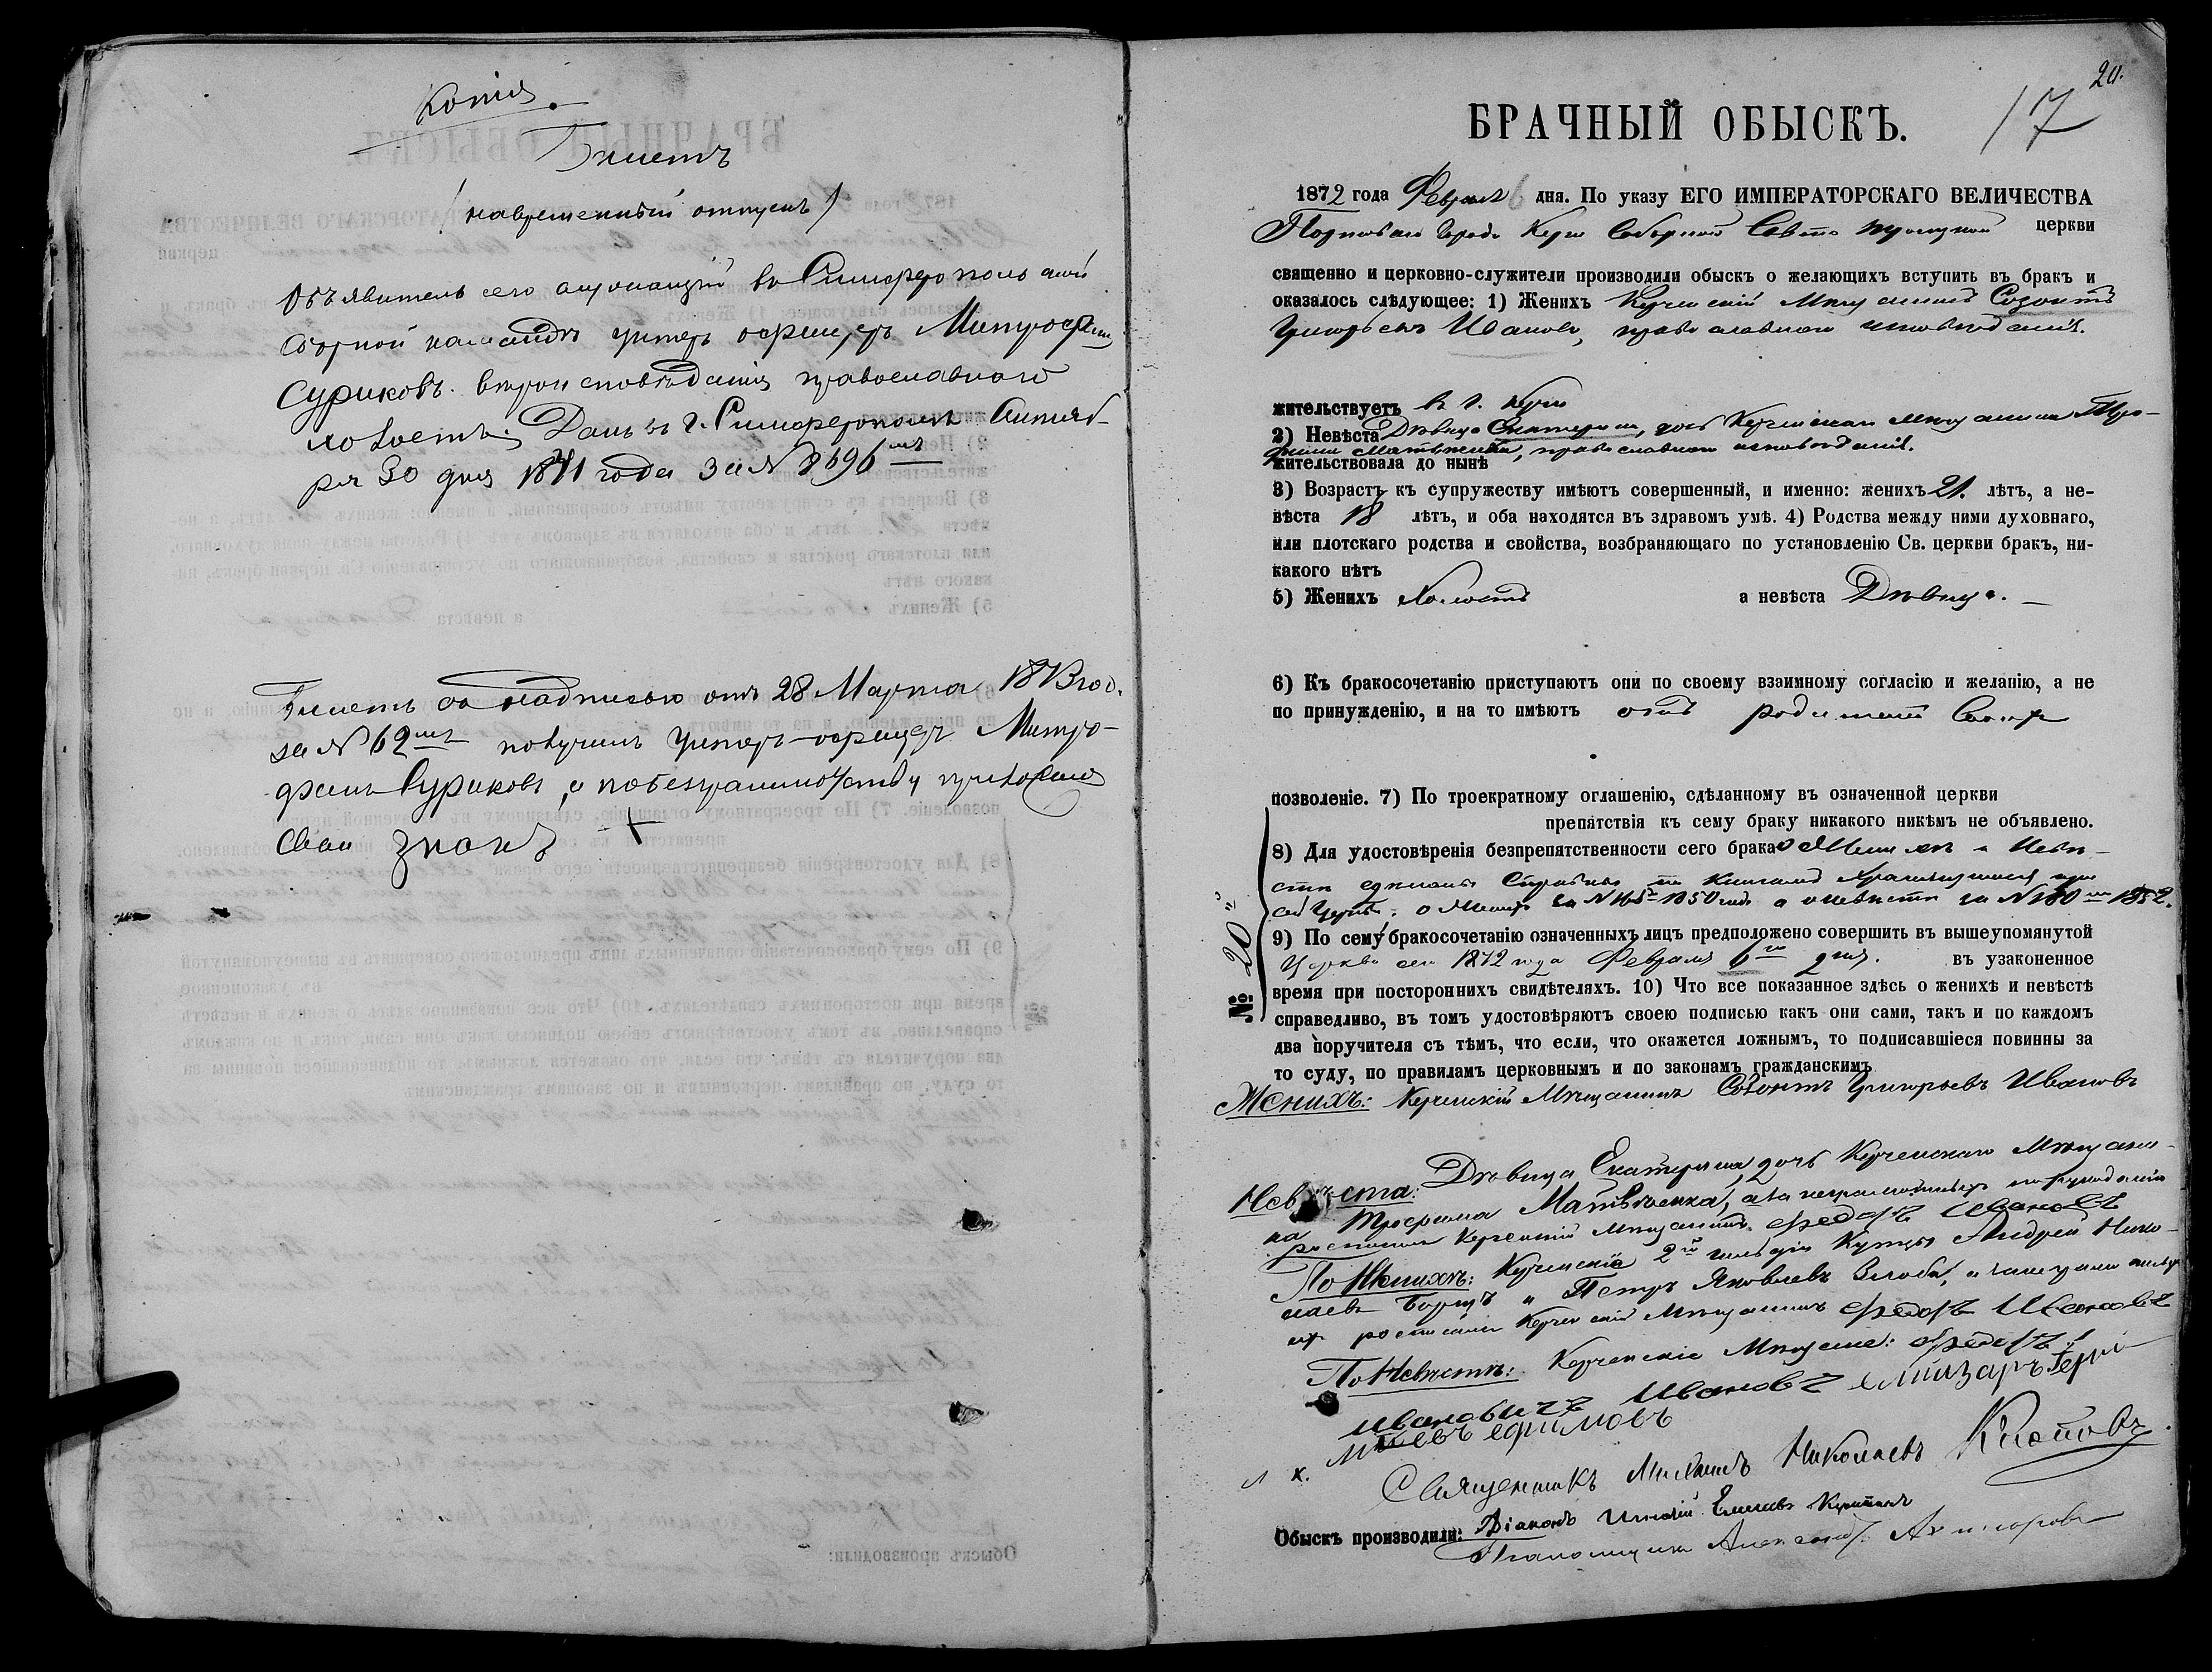 Копія.
Билетъ
(на временный отпускъ)
Объявитель сего служащій въ Симферопольской
сборной командѣ унтеръ офицеръ Митрофанъ
Суриковъ. вѣроисповѣданія православнаго
холостъ. Данъ въ г. Симферополѣ Октяб-
ря 30 дня 1871 года За № 8696
Билетъ съ надписью отъ 28 Марта год.
за № 62 получилъ Унтеръ-офицеръ Митро-
фанъ Суриковъ, а по безграмотству приложилъ
свой знакъ +
20.
17
БРАЧНЫЙ ОБЫСКЪ.
1872 года Февраля 6 дня. По указу ЕГО ИМПЕРАТОРСКАГО ВЕЛИЧЕСТВА
Города Керчи Соборной Свято Троицкой церкви
священно и церковно-служители производили обыскъ о желающихъ вступить въ бракъ и
оказалось слѣдующее: 1) Женихъ Керченскій Мѣщанинъ Созонтъ
Григорьевъ Ивановъ, православнаго исповѣданія.
жительствуетъ в г. Керчи
2) Невѣста Дѣвица Екатерина, дочь Керченскаго мѣщанина Тро-
фима Матвѣенка, православнаго исповѣданія.
жительствовала до нынѣ
3) Возрастъ къ супружеству имѣютъ совершенный, и именно: женихъ 21. лѣтъ, а не-
вѣста 18 лѣтъ, и оба находятся въ здравомъ умѣ. 4) Родства между ними духовнаго,
или плотскаго родства и свойства, возбраняющаго по установленію Св. церкви бракъ, ни-
какого нѣтъ
5) Женихъ Холостъ а невѣста Дѣвица. —
6) Къ бракосочетанію приступаютъ они по своему взаимному согласію и желанію, а не
по принужденію, и на то имѣютъ отъ родителей своихъ
позволеніе. 7) По троекратному оглашенію, сдѣланному въ означенной церкви
препятствія къ сему браку никакого никѣмъ не объявлено.
8) Для удостовѣренія безпрепятственности сего брака о Женихѣ и Невѣ-
стѣ сдѣланы справки по книгамъ хранящимся при
сей Церкви: о Женихѣ за № 1850 года а о невѣстѣ за № 180
№ 20
9) По сему бракосочетанію означенныхъ лицъ предположено совершить въ вышеупомянутой
Церкви сего 1872 года Февраля 6го дня. въ узаконенное
время при постороннихъ свидѣтеляхъ. 10) Что все показанное здѣсь о женихѣ и невѣстѣ
справедливо, въ томъ удостовѣряютъ своею подписью какъ они сами, такъ и по каждомъ
два поручителя съ тѣмъ, что если, что окажется ложнымъ, то подписавшіеся повинны за
то суду, по правиламъ церковнымъ и по законамъ гражданскимъ
Женихъ: Керченскій Мѣщанинъ Созонтъ Григорьевъ Ивановъ
Невѣста: Дѣвица Екатерина, дочь Керченскаго Мѣщани-
на Трофима Матвѣенка, а за неграмотностью
росписался Керченскій Мѣщанинъ Федоръ Ивановъ
По Женихѣ: Керченскіе 2й гильдіи Купцы Андрей Нико-
лаевъ Борщъ и Петръ Яковлевъ Злоба, а за неграмотностью
ихъ росписался Керченскій Мѣщанинъ Федоръ Ивановъ
По Невѣстѣ: Керченскіе Мѣщане: Федоръ
Ивановичъ Ивановъ
Ефимовъ
Священникъ Михаилъ Николаевъ
Обыскъ производили: Діаконъ